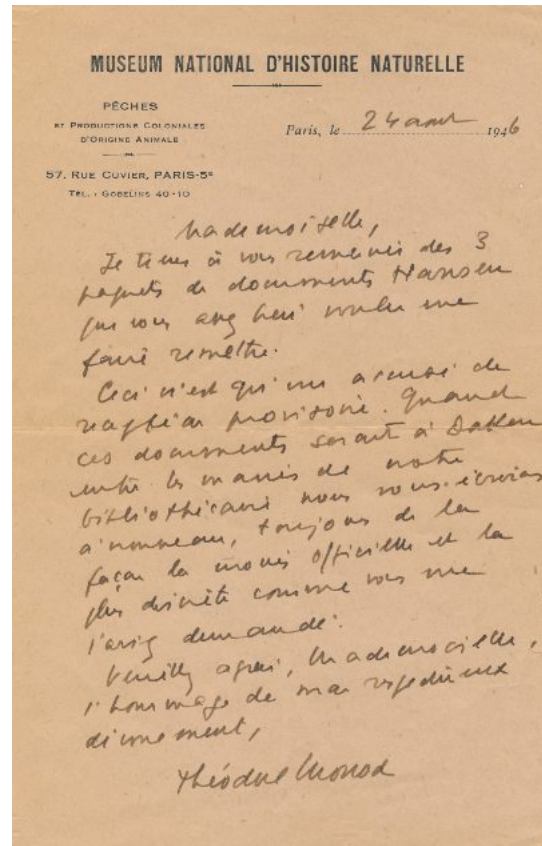 MUSEUM NATIONAL D'HISTOIRE NATURELLE
PÊCHES
ET PRODUCTIONS COLONIALES
D'ORIGINE ANIMALE
57, RUE CUVIER, PARIS-5e
TÉL. : GOBELINS 40-10
Paris, le 24 aout 1946
Mademoiselle,
Je tiens à vous remercier des 3
paquets de documents Hansen
que vous avez bien voulu me
faire remettre.
Ceci n'est qu'un accusé de
réception provisoire. Quand
ces documents seront à Dakar
entre les mains de notre
bibliothécaire nous vous écrirons
à nouveau, toujours de la
façon la moins officielle et la
plus discrète comme vous me
l'aviez demandé.
Veuillez agréer, Mademoiselle,
l'hommage de mon respectueux
dévouement,
Théodore Monod